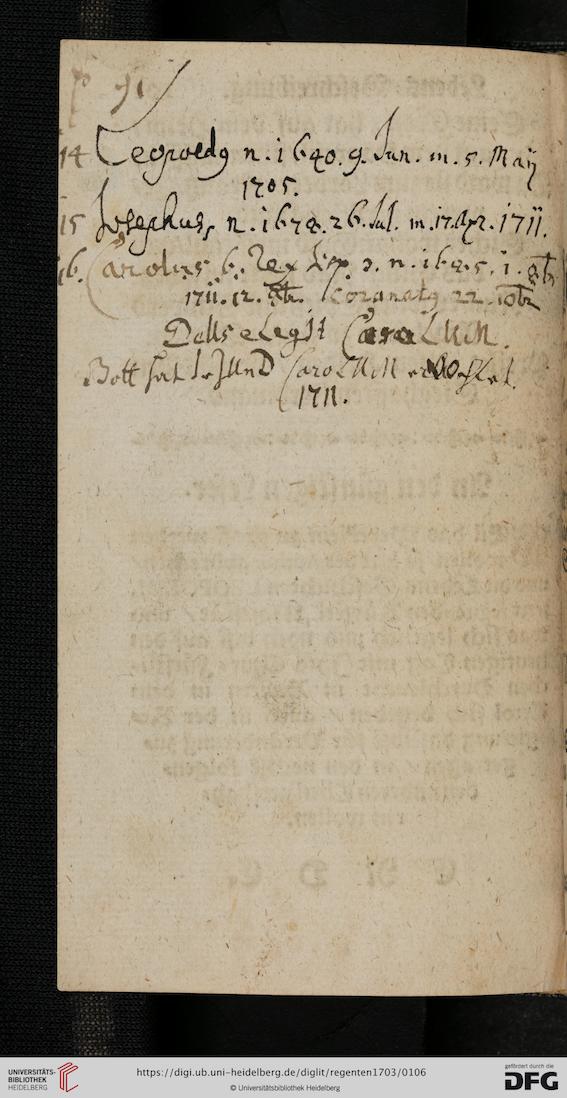 p 91
14 Leopoldg n. 1640. 9. Jun. m. 5. Maÿ
1705.
15 Josephus, n. 1678. 26. Jul. m. 17. Apr. 1711.
16. Carolus 6. Rex n. 1685. 1. 8br
1711. 12. 8br. Coronatg 22. Xbr
DeUs eLegIt CaroLUM.
Gott hat CaroLUM
1711.
UNIVERSITÄTS-
BIBLIOTHEK
HEIDELBERG
https://digi.ub.uni-heidelberg.de/diglit/regenten1703/0106
© Universitätsbibliothek Heidelberg
gefördert durch die
DFG